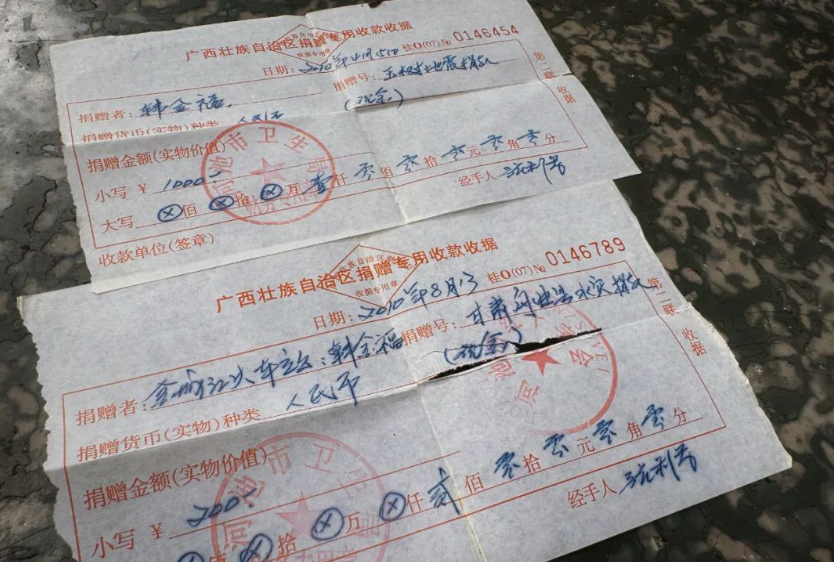 广西壮族自治区捐赠专用收款收据
日期：2010年4月15日 桂O(07)№ 0146454
捐赠者：韩金福 捐赠号：玉树地震捐款
(现金)
捐赠货币(实物)种类 人民币
捐赠金额(实物价值)
小写 ¥ 1000-
大写 ⊗佰⊗拾⊗万壹仟零佰零拾零元零角零分
收款单位(签章) 经手人
第二联 收据
河池市卫生局
广西壮族自治区捐赠专用收款收据
日期：2010年8月13 桂O(07)№ 0146789
捐赠者：金城江火车立交：韩金福 捐赠号：甘肃舟曲县水灾捐款
(现金)
捐赠货币(实物)种类 人民币
捐赠金额(实物价值)
小写 ¥ 200-
⊗佰⊗拾⊗万⊗仟贰佰零拾零元零角零分
经手人
第二联 收据
河池市卫生局